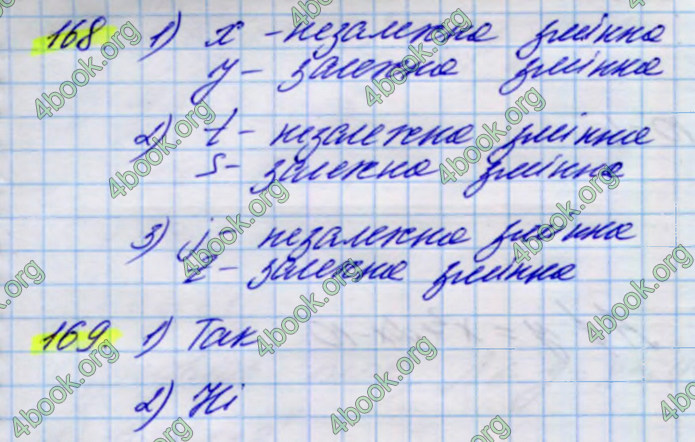 168 1) x - незалежна змінна
y - залежна змінна
2) t - незалежна змінна
s - залежна змінна
3) j - незалежна змінна
z - залежна змінна
169. 1) Так
2) Ні
4book.org